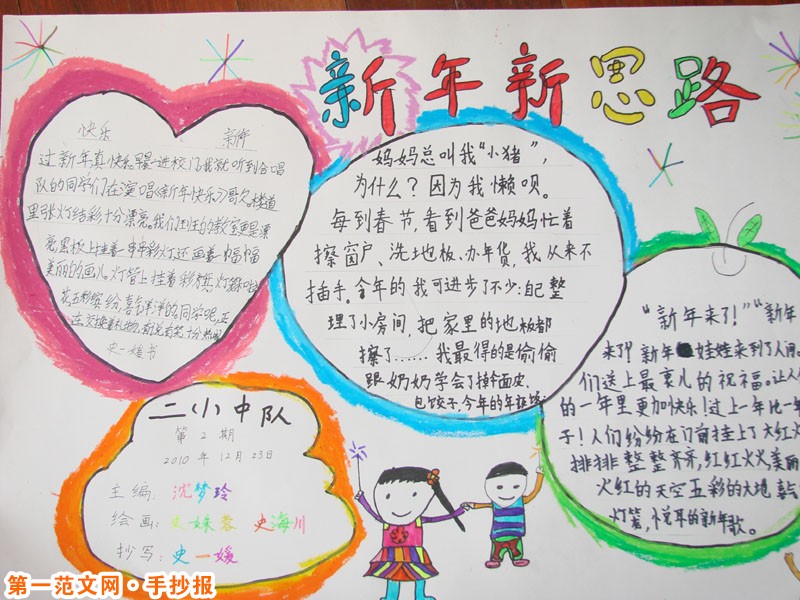 新年新思路
快乐 新年
过新年真快乐。早晨一进校门我就听到合唱
队的同学们在演唱《新年快乐》
里张灯结彩十分漂亮。我们班的教室更是漂
亮黑板上挂着一串串彩灯还画着一幅幅
美丽的画儿灯管上挂着彩旗灯
花五彩缤纷喜气洋洋的同学呢正
史一媛书
妈妈总叫我“小猪”，
为什么？因为我懒呗。
每到春节，看到爸爸妈妈忙着
擦窗户、洗地板、办年货，我从来不
插手。今年的我可进步了不少：自己整
理了小房间，把家里的地板都
擦了……我最得的是偷偷
跟奶奶学会了擀面皮、
包饺子，今年的年夜饭
“新年来了！”“新年
来了！”新年娃娃来到了人间。
们送上最衷儿的祝福。让人
的一年里更加快乐！过上一年比一年
子！人们纷纷在门前挂上了大红火
排排整整齐齐，红红火火，美丽
火红的天空五彩的大地
灯笼，悦耳的新年歌。
二小中队
第2期
2010年12月23日
主编：沈梦玲
绘画：史姝蓉 史海川
抄写：史一媛
第一范文网·手抄报